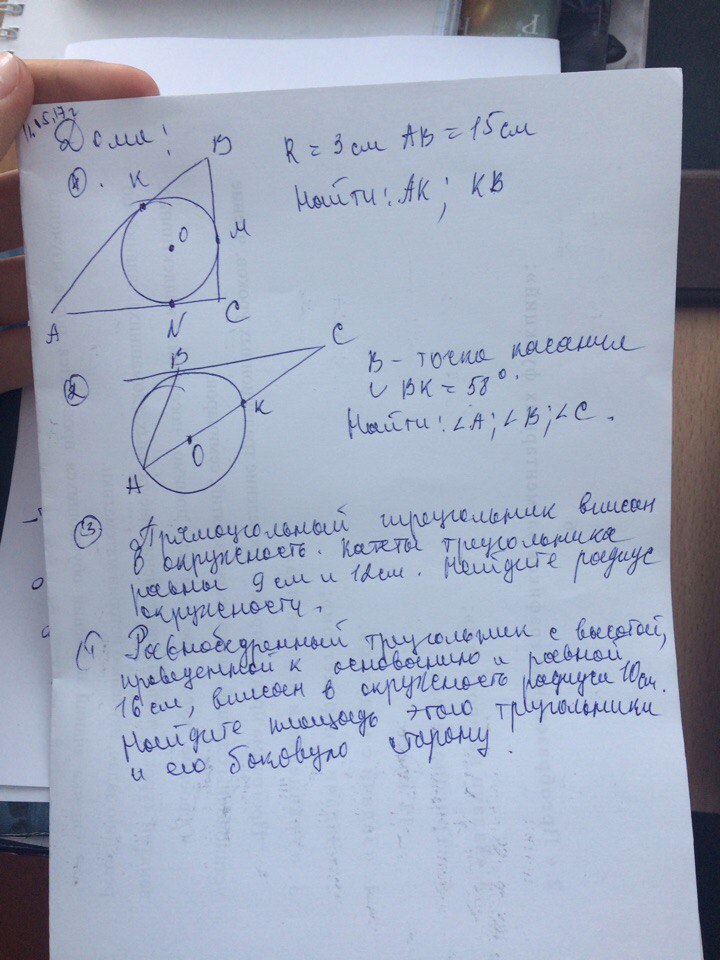 11.05.17г
Дома!
1. K B R = 3 см AB = 15 см
O M Найти: AK; KB
A N C
2 B C B - точка касания
K ◡ BK = 58°.
A O Найти: ∠A; ∠B; ∠C.
3 Прямоугольный треугольник вписан
в окружность. Катеты треугольника
равны 9 см и 12 см. Найдите радиус
окружности.
4 Равнобедренный треугольник с высотой,
проведенной к основанию и равной
16 см, вписан в окружность радиуса 10 см.
Найдите площадь этого треугольника
и его боковую сторону.